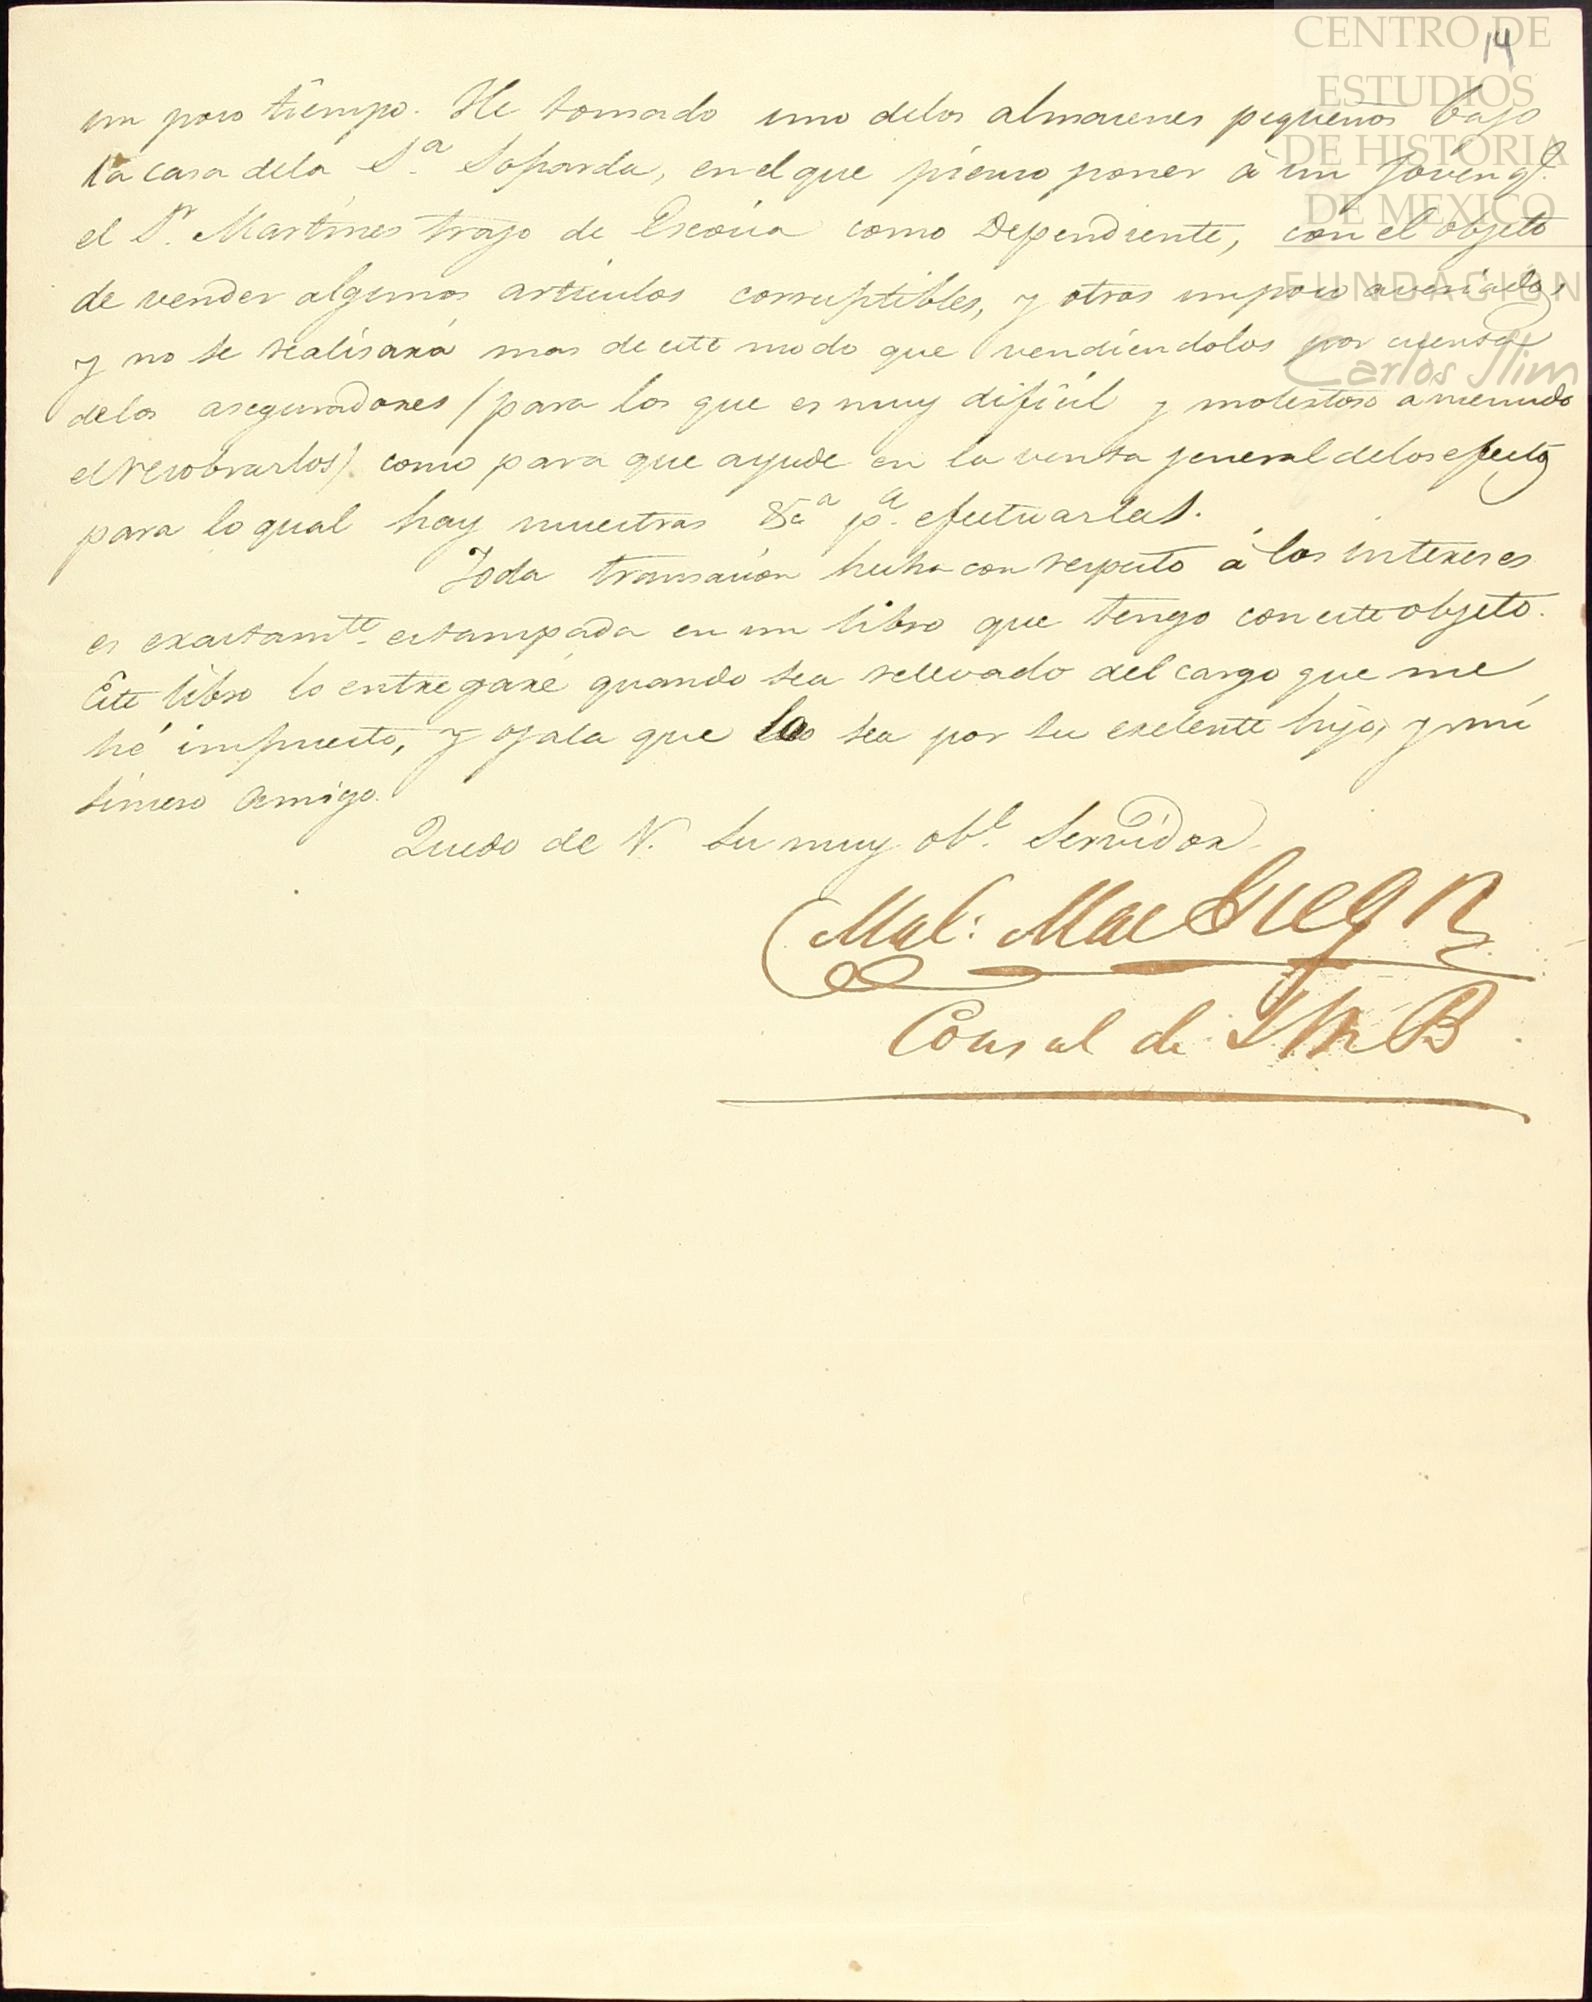 CENTRO DE
ESTUDIOS
DE HISTORIA
DE MEXICO
FUNDACION
Carlos Slim
14
un poco tiempo. He tomado uno delos almacenes pequeños bajo
la casa dela S.ª Soparda, en el que pienso poner à un Jóven q.e
el S.r Martines trajo de Escocia como Dependiente, con el objeto
de vender algunos articulos corruptibles, y otros un poco averiados
y no se realisará mas de este modo que vendiendolos por cuenta
delos aseguradores (para los que es muy dificil y molestoso amenudo
el recobrarlos) como para que ayude en la venta jeneral delos efectos
para lo qual hay muestras &c.ª p.ª efectuarlas.
Toda transacion hecha con respecto á los intereses
es exactam.te estampada en un libro que tengo con este objeto.
Este libro lo entregaré quando sea relevado del cargo que me
hé impuesto, y ojala que lo sea por su exelente hijo, y mi
sincero Amigo.
Quedo de V. su muy ob.e Servidor
Mal: MacGregor
Consul de S M B